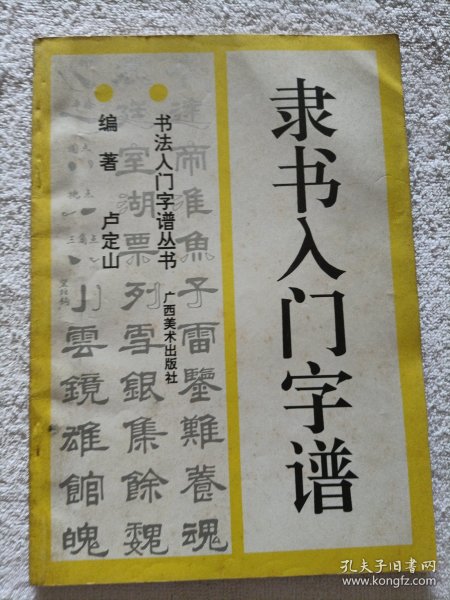 隶书入门字谱
书法人门字谱丛书
广西美术出版社
编著 卢定山
連帝淮魚子雷鑒難養魂
室湖票列雪銀集餘魏
川雲鏡雄館魄
孔夫子旧书网
www.kongfz.com